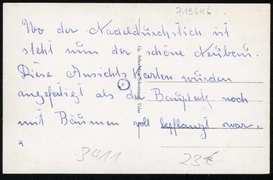 715646
Wo der Nadeldurchstich ist
steht nun der schöne Neubau.
Diese Ansichts Karten wurden
angefertigt als der Bauplatz noch
mit Bäumen voll bepflanzt war.
3411
23€